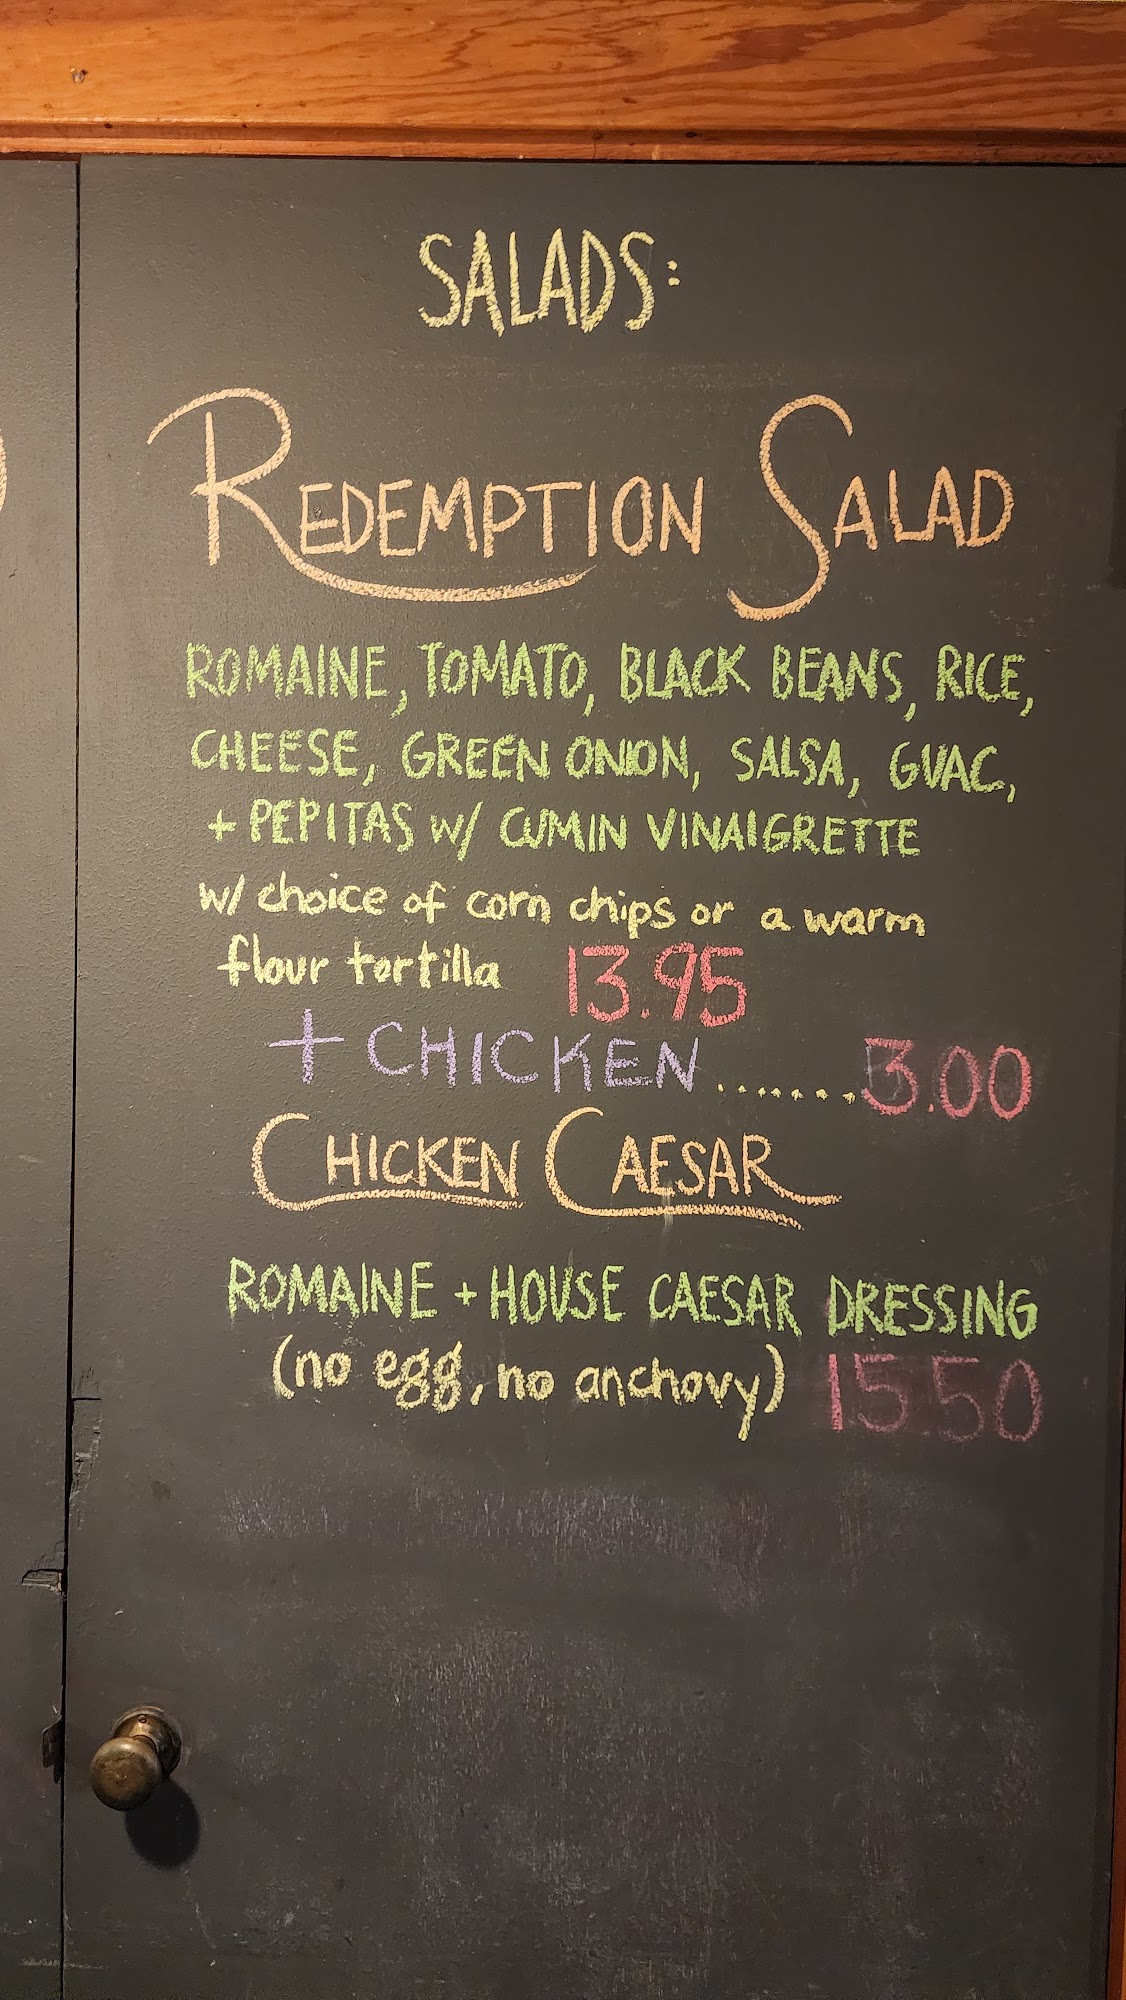 SALADS:
REDEMPTION SALAD
ROMAINE, TOMATO, BLACK BEANS, RICE,
CHEESE, GREEN ONION, SALSA, GUAC,
+ PEPITAS W/ CUMIN VINAIGRETTE
w/ choice of corn chips or a warm
flour tortilla 13.95
+ CHICKEN.......3.00
CHICKEN CAESAR
ROMAINE + HOUSE CAESAR DRESSING
(no egg, no anchovy) 15.50